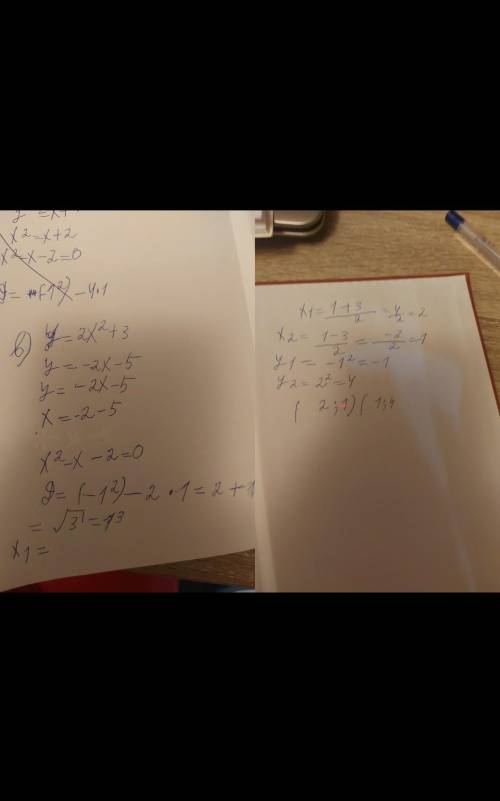 x²=x+2
x²-x-2=0
D=(-1²)-4·1
в) y=2x²+3
y=-2x-5
y=-2x-5
x=-2-5
x²-x-2=0
D=(-1²)-2·1=2+1
=√3=1³
x₁=
x₁=1+3/2=4/2=2
x₂=1-3/2=-2/2=1
y₁=-1²=-1
y₂=2²=4
( 2;1)(1;4